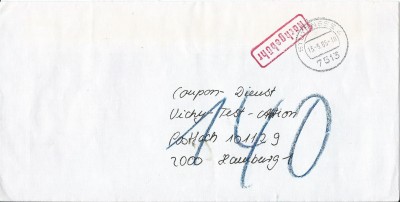 Nachgebühr
7513
Coupon-Dienst
Vichy-Test-Aktion
Postfach 101129
2000 Hamburg 1
140